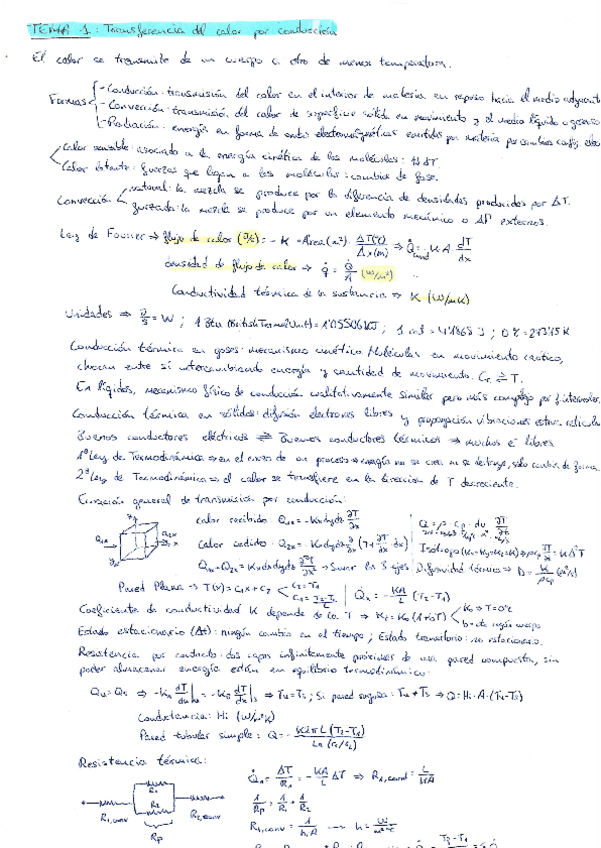 TEMA 1: Transferencia del calor por conducción
El calor se transmite de un cuerpo a otro de menor temperatura.
Formas
- Conducción: transmisión del calor en el interior de materia en reposo hacia el medio adyacente
- Convección: transmisión del calor de superficie sólida en movimiento y el medio líquido o gaseoso
- Radiación: energía en forma de ondas electromagnéticas emitidas por materia por cambios config. elec
Calor sensible: asociado a la energía cinética de las moléculas: ΔT.
Calor latente: fuerzas que ligan a las moléculas: cambios de fase.
Convección
natural: la mezcla se produce por la diferencia de densidades producidas por ΔT.
forzada: la mezcla se produce por un elemento mecánico o ΔP externos.
Ley de Fourier ⇒ flujo de calor (J/s) = - K · Área (m²) · ΔT(°C)/Δx(m) ⇒ Q̇cond = - K·A· dT/dx
densidad de flujo de calor ⇒ q̇ = Q̇/A (W/m²)
Conductividad térmica de la sustancia ⇒ K (W/mK)
Unidades ⇒ J/s = W ; 1 Btu (British Termal Unit) = 1'05506 KJ ; 1 cal = 4'1868 J ; 0°C = 273'15 K
Conducción térmica en gases: mecanismo cinético. Moléculas en movimiento caótico,
chocan entre sí intercambiando energía y cantidad de movimiento. Ec ⇌ T.
En líquidos, mecanismo físico de conducción cualitativamente similar pero más complejo por f. intermolec.
Conducción térmica en sólidos: difusión electrones libres y propagación vibraciones estruc. reticular
Buenos conductores eléctricos ⇌ Buenos conductores térmicos ⇒ muchos e⁻ libres
1ª Ley de Termodinámica ⇒ en el curso de un proceso ⇒ energía no se crea ni se destruye, solo cambia de forma.
2ª Ley de Termodinámica ⇒ el calor se transfiere en la direccion de T decreciente.
Ecuación general de transmisión por conducción:
calor recibido: Q₁ₓ = - K dydz ∂T/∂x
calor cedido: Q₂ₓ = - K dydz ∂/∂x (T + ∂T/∂x · dx)
⇒ Sumar los 3 ejes.
Difusividad térmica ⇒ D = K/ρCp (m²/s)
Pared Plana ⇒ T(x) = C₁x + C₂
C₂ = T₁
C₁ = T₂-T₁/L
Q̇ₓ = - KA/L (T₂-T₁)
Coeficiente de conductividad K depende de la T ⇒ Kt = K₀ (1+bT)
K₀ ⇒ T=0°C
b = cte según cuerpo
Estado estacionario (Δt): ningún cambio en el tiempo ; Estado transitorio: no estacionario.
Resistencia por contacto: dos capas infinitamente próximas de una pared compuesta, sin
poder almacenar energía están en equilibrio termodinámico:
Conductancia: Hi (W/m²K)
Pared tubular simple: Q = - K2πL (T₂-T₁) / Ln (r₂/r₁)
Resistencia térmica:
Q̇ₓ = ΔT/R₁ = - KA/L ΔT ⇒ R₁,cond = L/KA
1/Rp = 1/R₁ + 1/R₂
R₁,conv = 1/h·A → h = W/m²·°C
R₁
R₂
R₁,conv
R₂,conv
Rp